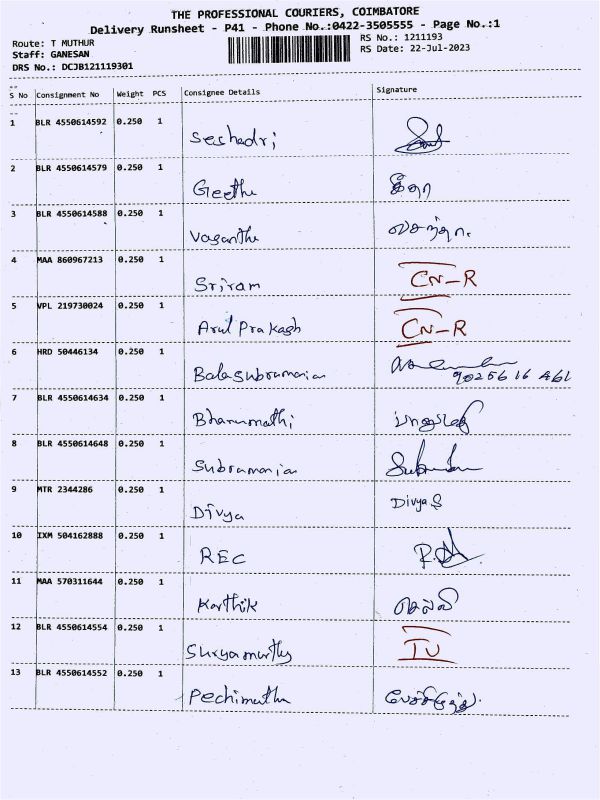 THE PROFESSIONAL COURIERS, COIMBATORE
Delivery Runsheet - P41 - Phone No.:0422-3505555 - Page No.:1
Route: T MUTHUR
RS No.: 1211193
Staff: GANESAN
RS Date: 22-Jul-2023
DRS No.: DCJB121119301
S No Consignment No Weight PCS Consignee Details Signature
1 BLR 4550614592 0.250 1 Seshadri
2 BLR 4550614579 0.250 1 Geetha கீதா
3 BLR 4550614588 0.250 1 Vasantha வசந்தா.
4 MAA 860967213 0.250 1 Sriram CN-R
5 VPL 219730024 0.250 1 Arul Prakash CN-R
6 HRD 50446134 0.250 1 Balasubramanian
7 BLR 4550614634 0.250 1 Bhanumathi பானுமதி
8 BLR 4550614648 0.250 1 Subramanian
9 MTR 2344286 0.250 1 Divya Divya S
10 IXM 504162888 0.250 1 REC
11 MAA 570311644 0.250 1 Karthik செல்வி
12 BLR 4550614554 0.250 1 Suryamurthy
13 BLR 4550614552 0.250 1 Pechimuthu பேச்சிமுத்து.